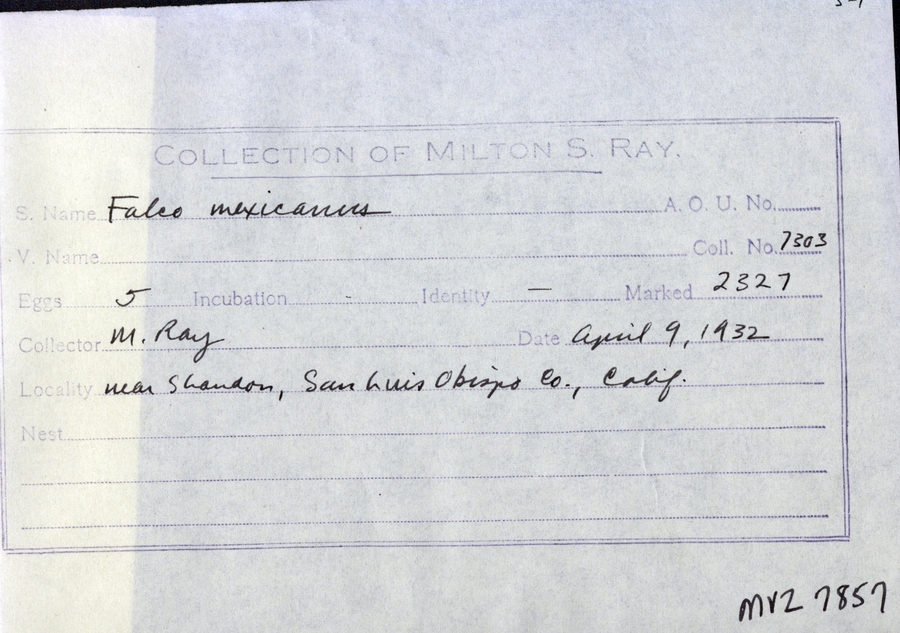 COLLECTION OF MILTON S. RAY.
S. Name Falco mexicanus A. O. U. No.
V. Name Coll. No. 7303
Eggs 5 Incubation - Identity — Marked 2327
Collector M. Ray Date April 9, 1932
Locality near Shandon, San Luis Obispo Co., Calif.
Nest
MVZ 7857